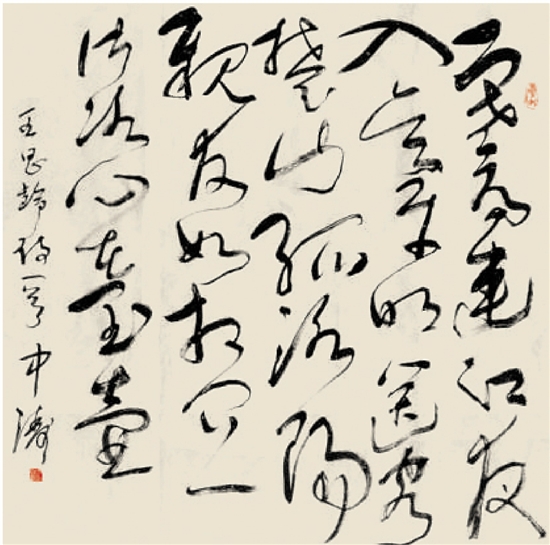 寒雨連江夜
入吴平明送客
楚山孤洛陽
親友如相问一
片冰心在玉壶
王昌龄詩一首 中濤